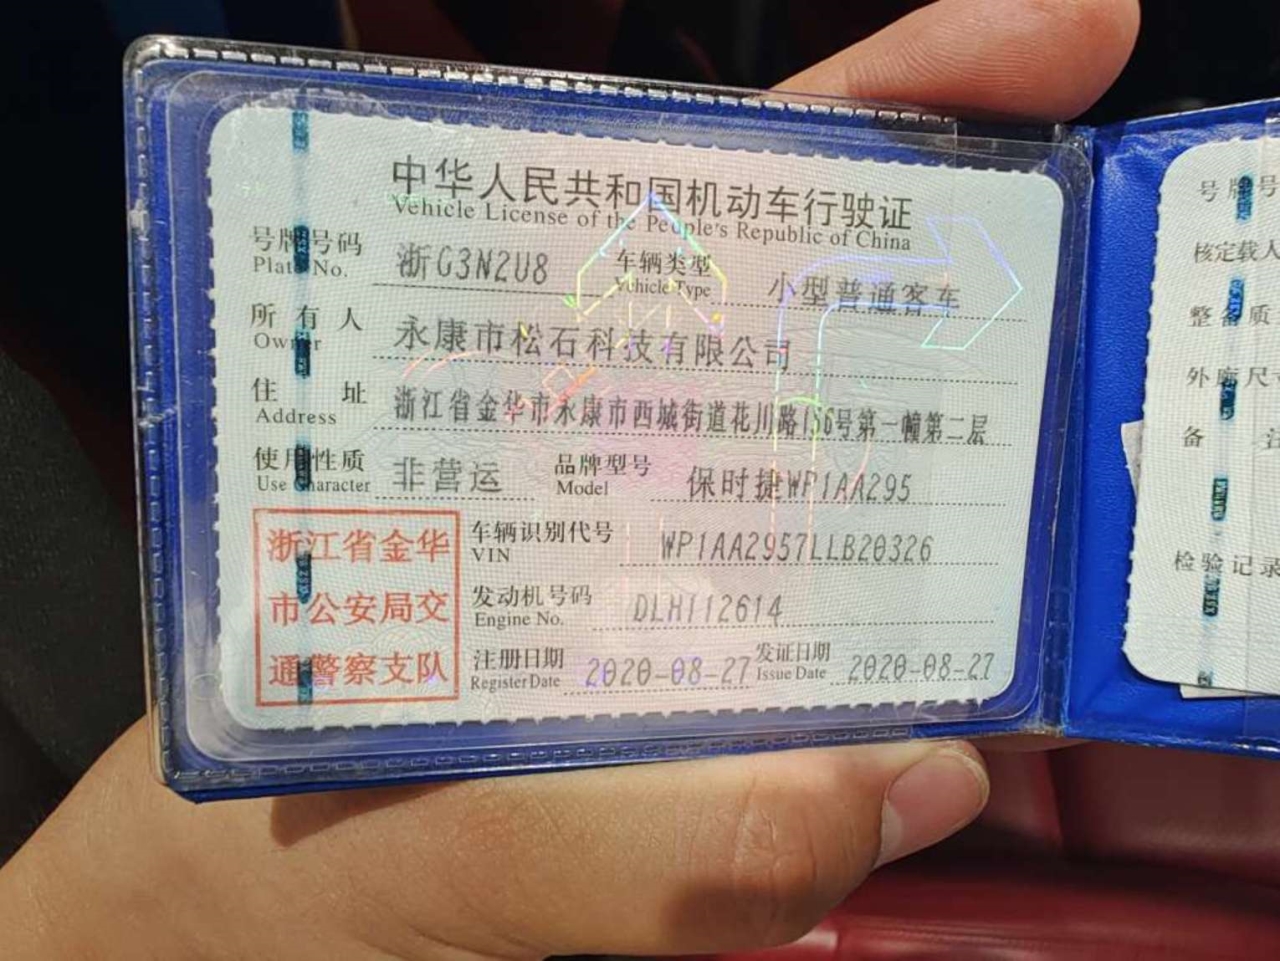 中华人民共和国机动车行驶证
Vehicle License of the People's Republic of China
号牌号码 浙G3N2U8 车辆类型 小型普通客车
Plate No. Vehicle Type
所有人 永康市松石科技有限公司
Owner
住址 浙江省金华市永康市西城街道花川路156号第一幢第二层
Address
使用性质 非营运 品牌型号 保时捷WP1AA295
Use Character Model
浙江省金华
市公安局交
通警察支队
车辆识别代号 WP1AA2957LLB20326
VIN
发动机号码 DLHT12614
Engine No.
注册日期 2020-08-27 发证日期 2020-08-27
Register Date Issue Date
号牌号
核定载人
整备质
外廓尺寸
备
检验记录